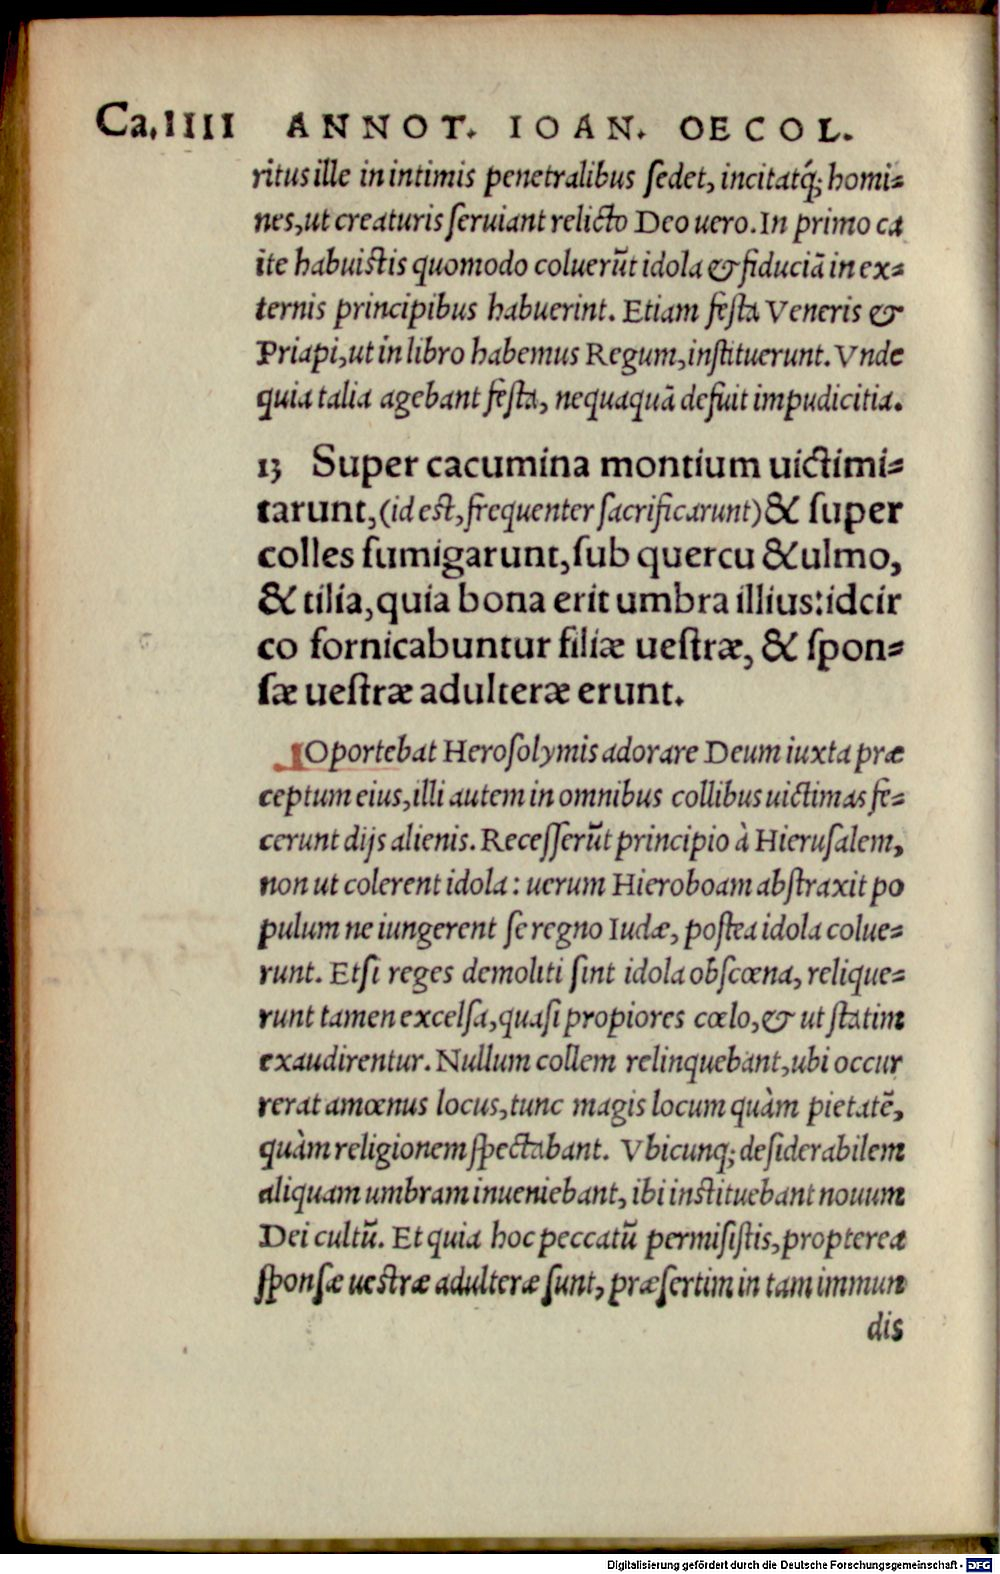 Ca.IIII ANNOT. IOAN. OECOL.
ritus ille in intimis penetralibus ſedet, incitatq́; homi⸗
nes, ut creaturis ſeruiant relicto Deo uero. In primo ca
ite habuistis quomodo coluerũt idola & fiduciã in ex⸗
ternis principibus habuerint. Etiam feſta Veneris &
Priapi, ut in libro habemus Regum, instituerunt. Vnde
quia talia agebant feſta, nequaquã defuit impudicitia.
13 Super cacumina montium uictimi⸗
tarunt, (id est, frequenter ſacrificarunt) & ſuper
colles fumigarunt, ſub quercu & ulmo,
& tilia, quia bona erit umbra illius: idcir
co fornicabuntur filiæ ueſtræ, & ſpon⸗
ſæ ueſtræ adulteræ erunt.
¶ Oportebat Heroſolymis adorare Deum iuxta præ
ceptum eius, illi autem in omnibus collibus uictimas fe⸗
cerunt dijs alienis. Receſſerũt principio à Hieruſalem,
non ut colerent idola: uerum Hieroboam abſtraxit po
pulum ne iungerent ſe regno Iudæ, poſtea idola colue⸗
runt. Etſi reges demoliti ſint idola obſcœna, relique⸗
runt tamen excelſa, quaſi propiores cœlo, & ut ſtatim
exaudirentur. Nullum collem relinquebant, ubi occur
rerat amœnus locus, tunc magis locum quàm pietatẽ,
quàm religionem ſpectabant. Vbicunq; deſiderabilem
aliquam umbram inueniebant, ibi instituebant nouum
Dei cultũ. Et quia hoc peccatũ permiſiſtis, propterea
ſponſæ uestræ adulteræ ſunt, præſertim in tam immun
dis
Digitalisierung gefördert durch die Deutsche Forschungsgemeinschaft - DFG